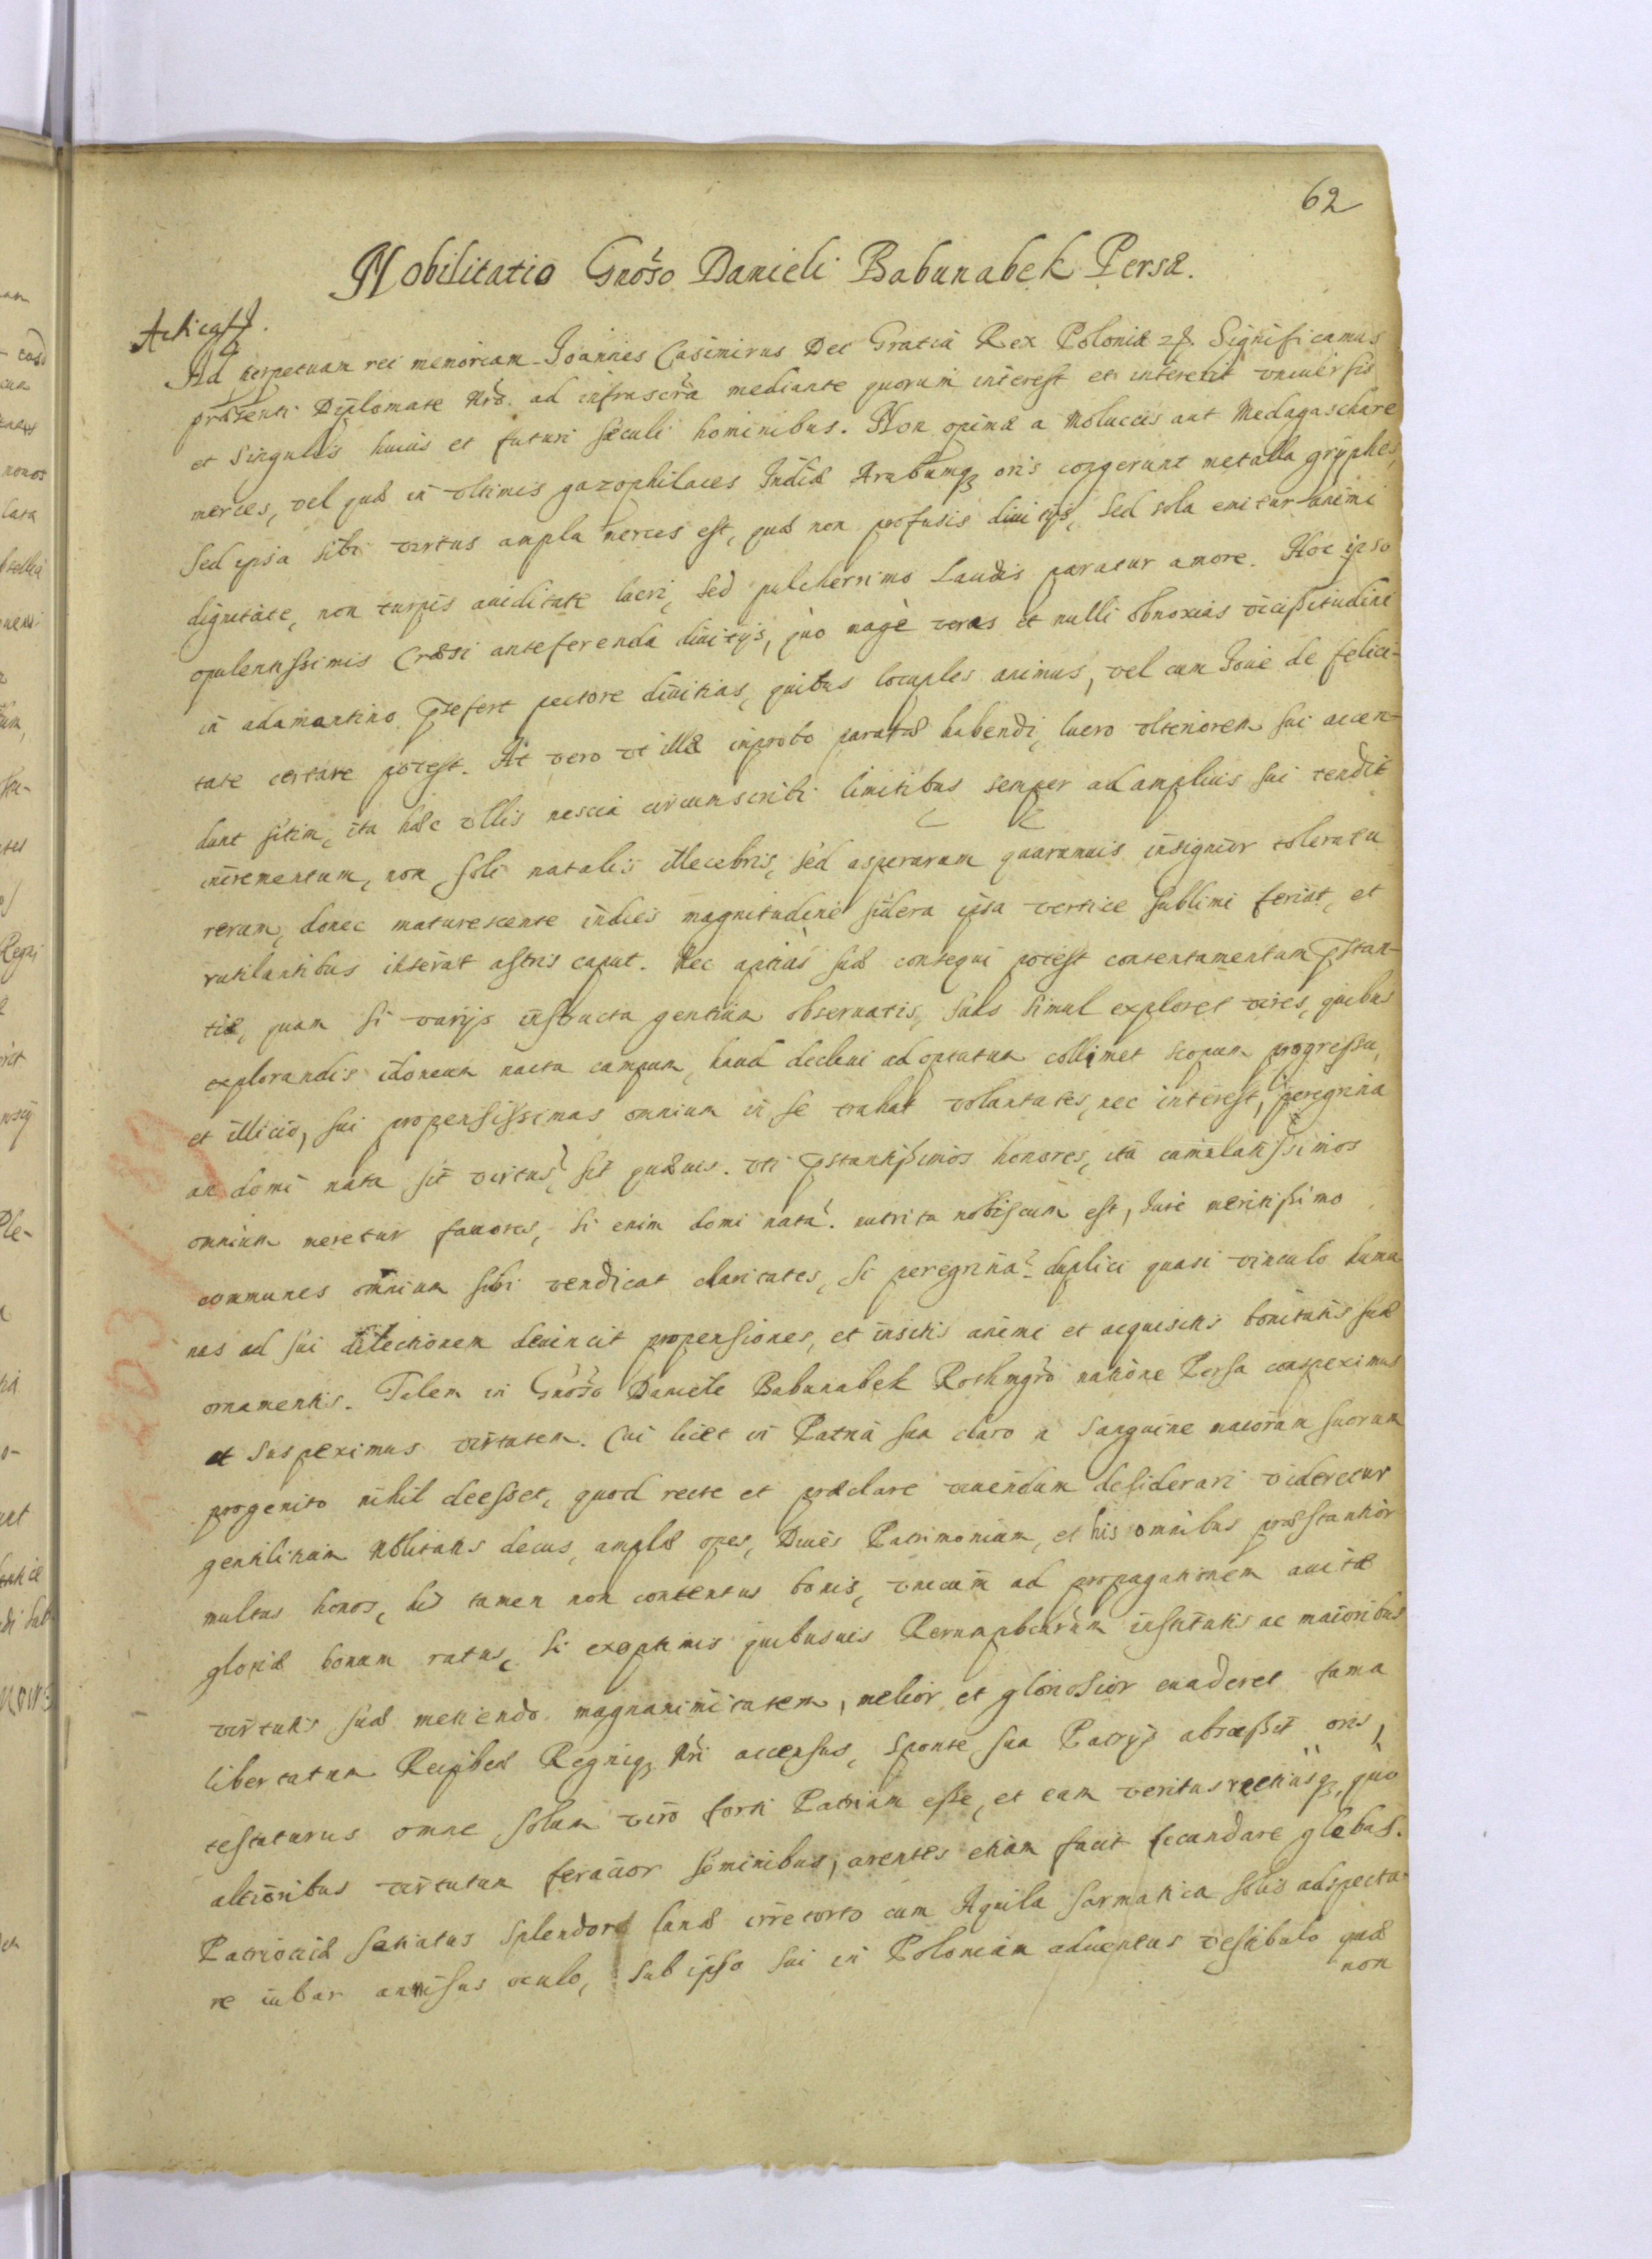 62
Nobilitatio Gnoso Danieli Babunabek Persæ.
Ad perpetuam rei memoriam Joannes Casimirus Dei Gratia Rex Poloniæ Significamus
præsenti Diplomate Nro ad infrascra mediante quorum interest et intererit universis
et singulis huius et futuri sæculi hominibus. Non opimæ a Moluccis aut Medagaschare
merces, vel quæ in ultimis gazophilaces Indiæ Arabumq oris congerunt metalla gryphes,
Sed ipsa sibi virtus ampla merces est, quæ non profusis divitijs, sed sola emitur animi
dignitate, non turpis aviditate lucri, sed pulcherrimo Laudis paratur amore. Hoc ipso
opulentissimis Cræsi anteferenda divitijs, quo magè veras et nulli obnoxias vicissitudini
in adamantino præfert pectore divitias, quibus locuples animus, vel cum Jove de felici-
tate certare potest. At vero ut illæ improbo paratæ habendi lucro ulteriorem sui accen-
dunt sitim, ita hæc ullis nescia circumscribi limitibus semper ad amplius sui tendit
incrementum, non soli natalis illecebris, sed asperarum quarumvis insignior toleratu
rerum, donec maturescente indies magnitudine sidera ipsa vertice sublimi feriat, et
rutilantibus inserat astris caput. Nec aptius suæ consequi potest contentamentum præstan-
tiæ, quam si varijs instructa gentium observatis, suas simul exploret vires, quibus
explorandis idoneum nacta campum, haud declivi ad optatum collimet scopum progressu,
et illicio, sui propensissimas omnium in se trahat voluntates, nec interest, peregrina
an domi nata sit virtus, sit quævis. uti præstantissimos honores, ita cumulatissimos
omnium meretur favores, si enim domi nata. nutrita nobiscum est, Jure meritissimo
communes omnium sibi vendicat claritates, si peregrina duplici quasi vinculo huma
nas ad sui dilectionem devincit propensiones, et insitis animi et acquisitis bonitatis suæ
ornamentis. Talem in Gnoso Daniele Babunabek natione Persa conspeximus
et suspeximus virtutem. Cui licet in Patria sua claro a sanguine maiorum suorum
progenito nihil deesset, quod recte et præclare vivendum desiderari videretur
gentilitium Nblitatis decus, amplæ opes, Dives Patrimonium, et his omnibus præstantior
multus honos, his tamen non contentus bonis, unicum ad propagationem avitæ
gloriæ bonum ratus, si ex optimis quibusvis Rerumpbcarum institutis ac maioribus
virtutis suæ metiendo magnanimitatem, melior et gloriosior evaderet fama
libertatum Reipbcæ Regniq Nri accensus, sponte sua Patrijs abscessit oris,
testaturus omne solum viro forti Patriam esse, et eam veritus quo
altioribus virtutum feracior seminibus, arentes etiam facit fecundare glebas.
satiatus splendore lunæ irretorto cum Aquila sarmatica solis adspecta-
re iubar annisus oculo, sub ipso sui in Poloniam adventus vestibulo quæ
non